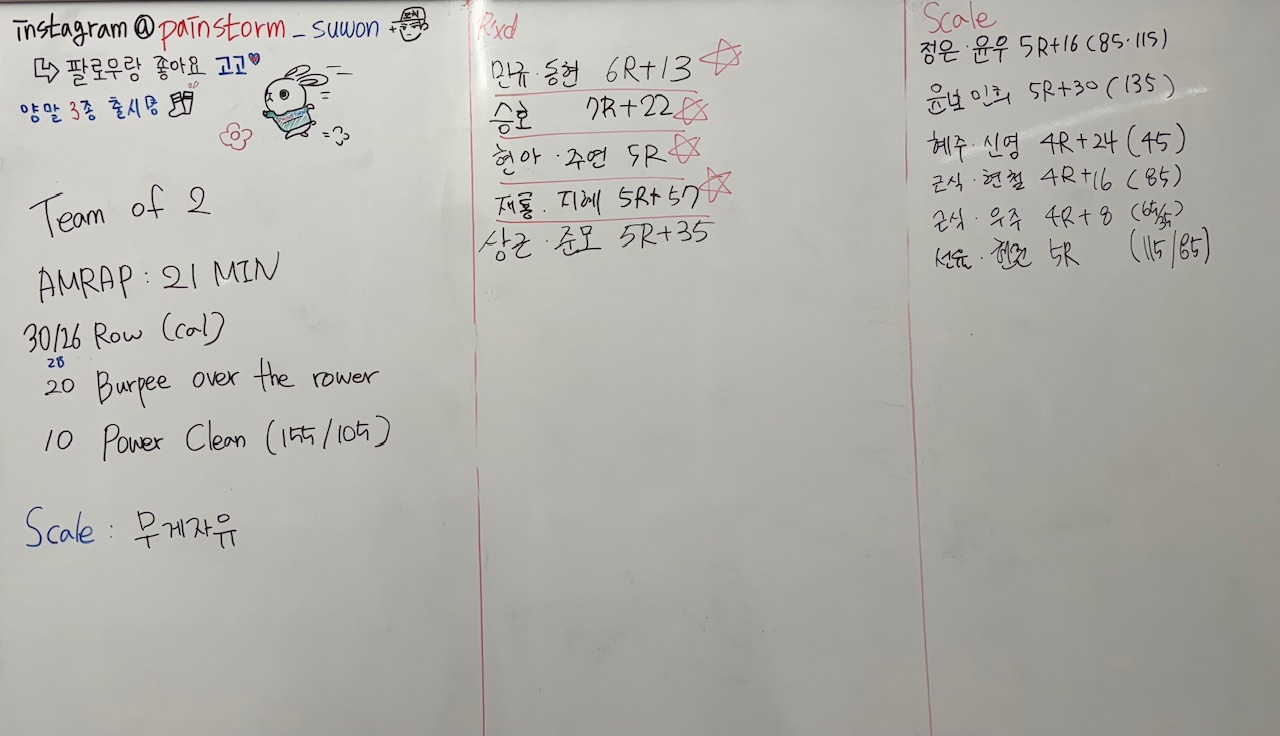 instagram@painstorm_suwon +
팔로우랑 좋아요 고고
양말 3종 출시중
Team of 2
AMRAP : 21 MIN
30/26 Row (cal)
28
20 Burpee over the rower
10 Power Clean (155/105)
Scale : 무게자유
Rxd
민규·승현 6R+13
승호 7R+22
현아·주연 5R
재룡·지혜 5R+57
상근·준모 5R+35
Scale
정은·윤우 5R+16 (85·115)
윤보 민희 5R+30 (135)
혜주·신영 4R+24 (45)
근식·현철 4R+16 (85)
근식·우주 4R+8 (65/35)
5R (115/85)